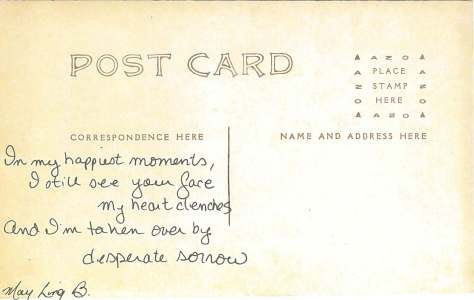 POST CARD
AZOA
PLACE
STAMP
HERE
AZOA
CORRESPONDENCE HERE
NAME AND ADDRESS HERE
In my happiest moments,
I still see your face
my heart clenches
And I'm taken over by
desperate sorrow
May Ling B.